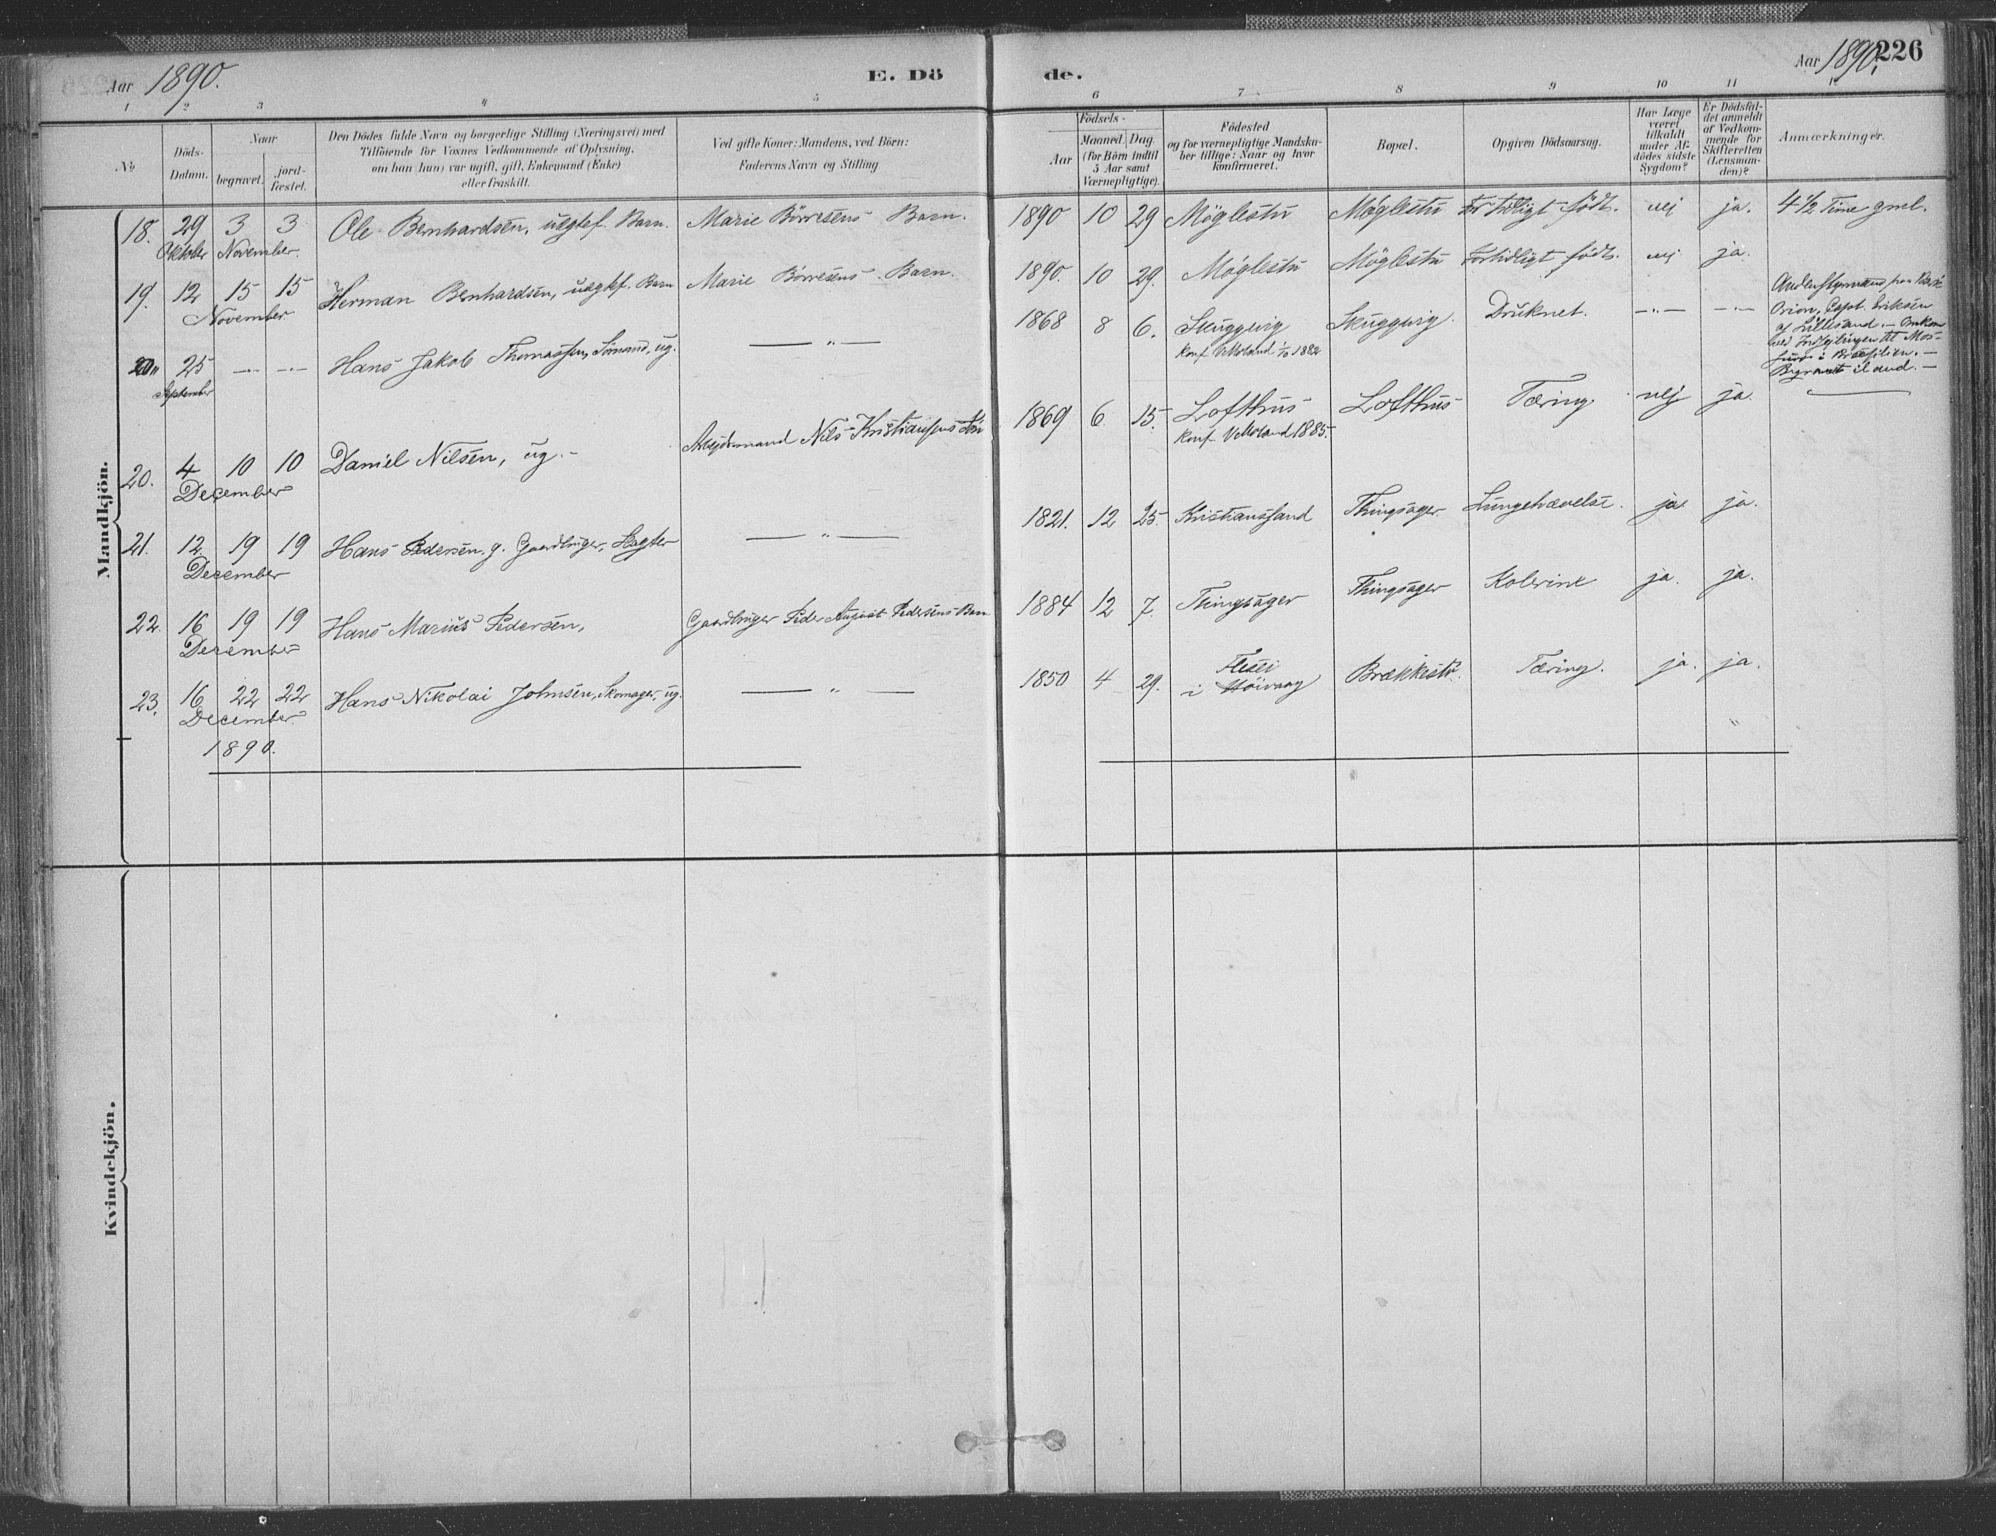 Aar 1890.
E. Dö
de.
Aar 1890.
226
1 2 3 4 5
6 7 8 9 10 11 12
No
Döds-Datum.
Naar
begravet.
jord-fæstet.
Den Dödes fulde Navn og borgerlige Stilling (Næringsvei) med
Tilföiende for Voxnes Vedkommende af Oplysning,
om han (hun) var ugift, gift, Enkemand (Enke)
eller fraskilt.
Ved gifte Koner: Mandens, ved Börn:
Faderens Navn og Stilling
Födsels-
Aar
Maaned. Dag.
(for Börn indtil
5 Aar samt
Værnepligtige).
Födested
og for værnepligtige Mandska-
ber tillige: Naar og hvor
konfirmeret.
Bopæl.
Opgiven Dödsaarsag.
Har Læge
været
tilkaldt
under Af-
dödes sidste
Sygdom?
Er Dödsfal-
det anmeldt
af Vedkom-
mende for
Skifteretten
(Lensman-
den)?
Anmærkninger.
Mandkjön.
18. 29 Oktober 3 3 November. Ole Bernhardsen, uægtef. Barn. Marie Börresens Barn. 1890 10 29 Möglestu Möglestu For tidligt födt. nej ja. 4 1/2 Time gml.
19. 12 15 15 November Herman Bernhardsen, uægtf. Barn Marie Börresens Barn. 1890. 10 29. Möglestu Möglestu Fortidligt födt. nej ja.
20" 25 September —"— —"— Hans Jakob Thomassen, Sömand, ug. — " — 1868 8 6. Skuggevig Konf. V. Moland 1/10 1882 Skuggevig. Druknet. —"— —"—
Andenstyrmand paa Bark
Orion, Capt. Eriksen
af Lillesand. — Omkom
ved Indsejlingen til Mos-
i Brasilien. —
iland. —
20. 4 10 10 December Daniel Nilsen, ug. — Arbejdsmand Nils Kristiansens Sön 1869 6 15. Lofthus Konf. V. Moland 1885. Lofthus Tæring. nej ja —
21. 12 19 19 December Hans Pedersen, g. Gaardbruger, — " — 1821. 12 25. Kristianssand Thingsager Lungebrævelse. ja. ja.
22. 16 19 19 December Hans Marius Pedersen, Gaardbruger Peder August Pedersens Barn 1884 12 7. Thingsager Thingsager Kolerine ja. ja.
23. 16 22 22 December. Hans Nikolai Johnsen, Skomager, ug. — " — 1850 4 29. i Höivaag Brækkestö. Tæring. ja. ja.
"
1890.
Kvindekjön.